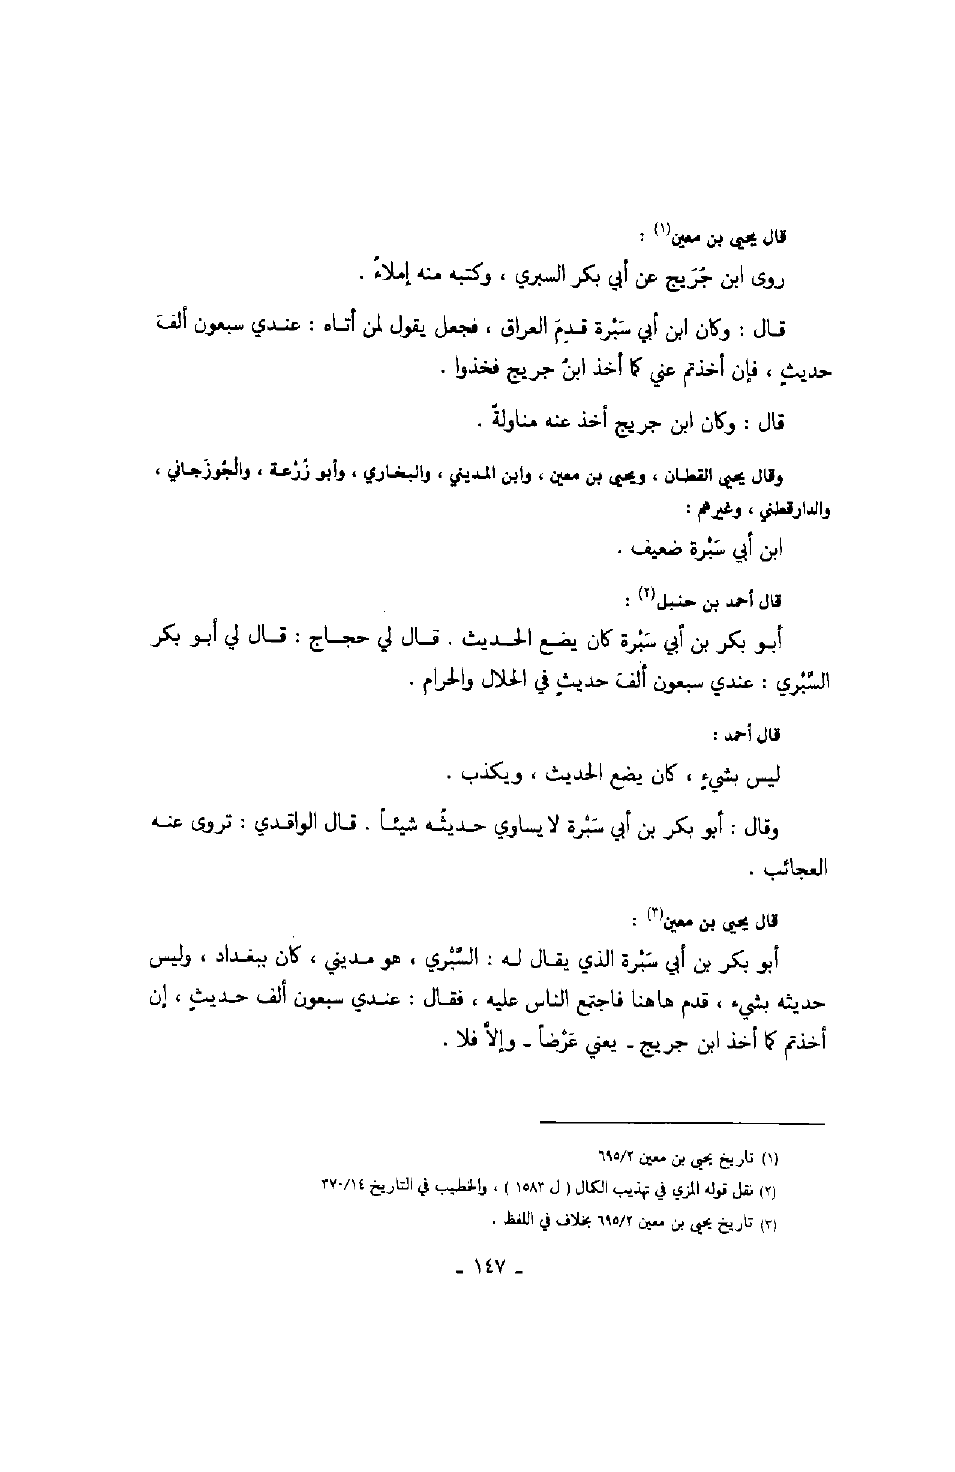 قال يحيى بن معين(١) :
روى ابن جُرَيج عن أبي بكر السبري ، وكتبه منه إملاءً .
قال : وكان ابن أبي سَبْرة قدِمَ العراق ، فجعل يقول لمن أتاه : عندي سبعون ألفَ
حديثٍ ، فإن أخذتم عني كما أخذ ابنُ جريج فخذوا .
قال : وكان ابن جريج أخذ عنه مناولةً .
وقال يحيى القطان ، ويحيى بن معين ، وابن المديني ، والبخاري ، وأبو زُرْعة ، والجُوزَجاني ،
والدارقطني ، وغيرهم :
ابن أبي سَبْرة ضعيف .
قال أحمد بن حنبل(٢) :
أبو بكر بن أبي سَبْرة كان يضع الحديث . قال لي حجاج : قال لي أبو بكر
السَّبْري : عندي سبعون ألفَ حديثٍ في الحلال والحرام .
قال أحمد :
ليس بشيءٍ ، كان يضع الحديث ، ويكذب .
وقال : أبو بكر بن أبي سَبْرة لا يساوي حديثُه شيئاً . قال الواقدي : تروى عنه
العجائب .
قال يحيى بن معين(٣) :
أبو بكر بن أبي سَبْرة الذي يقال له : السَّبْري ، هو مديني ، كان ببغداد ، وليس
حديثه بشيء ، قدم هاهنا فاجتمع الناس عليه ، فقال : عندي سبعون ألف حديثٍ ، إن
أخذتم كما أخذ ابن جريج ـ يعني عَرْضاً ـ وإلاَّ فلا .
(١) تاريخ يحيى بن معين ٦٩٥/٢
(٢) نقل قوله المزي في تهذيب الكمال ( ل ١٥٨٣ ) ، والخطيب في التاريخ ٣٧٠/١٤
(٣) تاريخ يحيى بن معين ٦٩٥/٢ بخلاف في اللفظ .
ـ ١٤٧ ـ